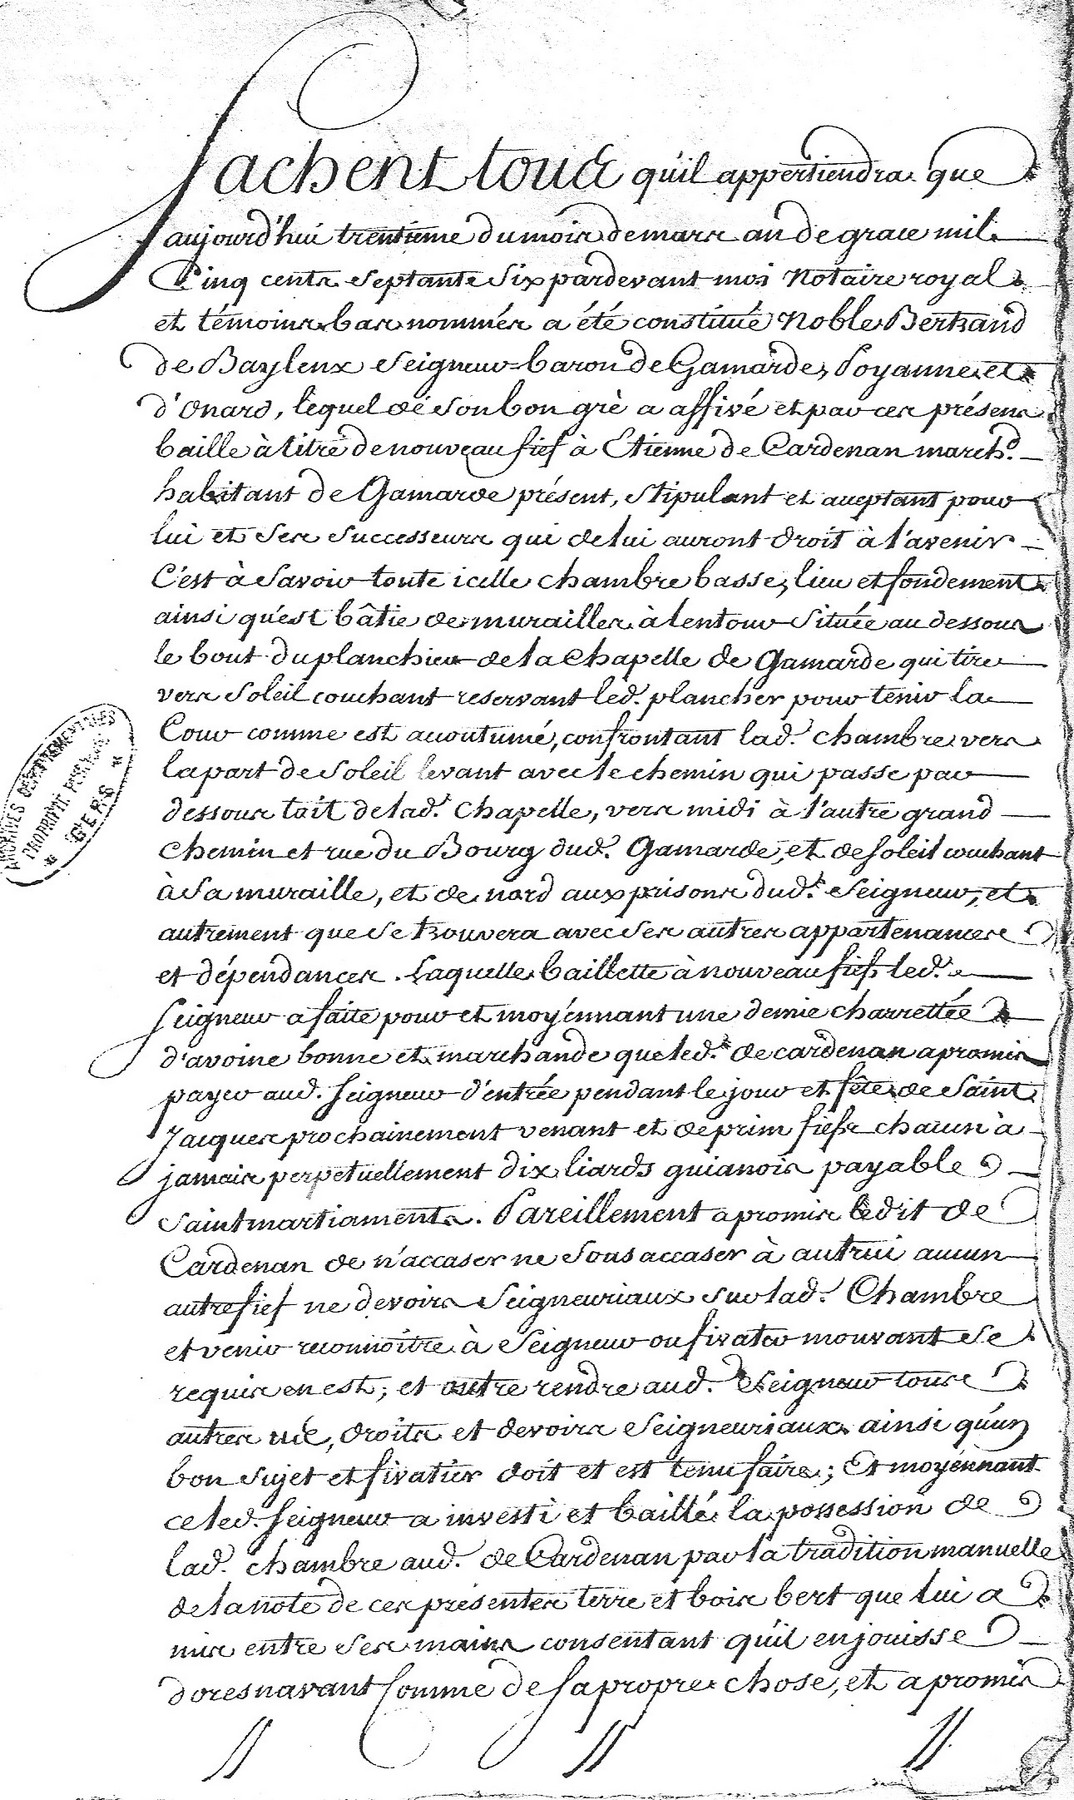 Sachent tous qu'il appertiendra que
aujourd'hui trentième du mois de mars an de grace mil
Cinq cents septante six pardevant moi Notaire royal
et témoins bas nommés a été constitué Noble Bertrand
de Baylenx Seigneur baron de Gamarde, Poyanne et
d'Onard, lequel de son bon gré a affivé et par ces présens
baille à titre de nouveau fief à Etienne de Cardenan march.d
habitant de Gamarde présent, stipulant et aceptant pour
lui et ses successeurs qui de lui auront droit à l'avenir
C'est à savoir toute icelle chambre basse, lieu et fondement
ainsi qu'est bâtie de murailles à lentour située au dessous
le bout du plancher de la Chapelle de Gamarde qui tire
vers soleil couchant reservant led. plancher pour tenir la
Cour comme est acoutumé, confrontant lad. chambre vers
la part de soleil levant avec le chemin qui passe par
dessous toit de lad.e Chapelle, vers midi à l'autre grand
chemin et rue du Bourg dud. Gamarde, et de soleil couchant
à sa muraille, et de nord aux prisons dud.t Seigneur, et
autrement que se trouvera avec ses autres appartenances
et dépendances. Laquelle baillette à nouveau fief led.
Seigneur a faite pour et moyénnant une demie charrettée
d'avoine bonne et marchande que led.t de cardenan a promis
payer aud. Seigneur d'entrée pendant le jour et fête de Saint
Jacques prochainement venant et de prim fiefs chacun à
jamais perpetuellement dix liards guianois payable
Saint martiaments. Pareillement a promis ledit de
Cardenan de n'accaser ne sous accaser à autrui aucun
autre fief ne devoirs Seigneuriaux sur lad. Chambre
et venir reconnoitre à Seigneur ou fivater mouvant se
requis en est; et outre rendre aud. Seigneur tous
autres droits et devoirs Seigneuriaux ainsi qu'un
bon sujet et fivatier doit et est tenu faire; Et moyénnant
ce led. Seigneur a investi et baillé la possession de
lad. chambre aud. de Cardenan par la tradition manuelle
de la note de ces présentes terre et bois bert que lui a
mis entre ses mains consentant qu'il en jouisse
doresnavant Comme de sa propre chose, et a promis
ARCHIVES DÉPARTEMENTALES
PROPRIÉTÉ PUBLIQUE
* GERS *